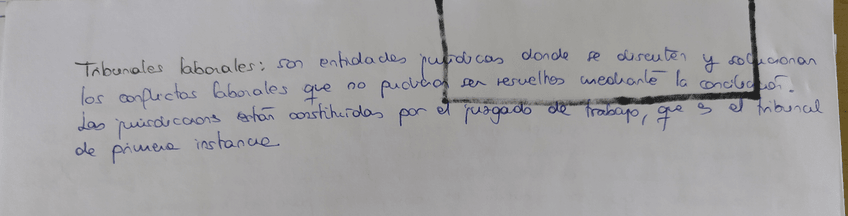 Tribunales laborales: son entidades jurídicas donde se discuten y solucionan
los conflictos laborales que no pudieron ser resueltos mediante la conciliación.
Las jurisdicciones están constituidas por el juzgado de trabajo, que es el tribunal
de primera instancia.